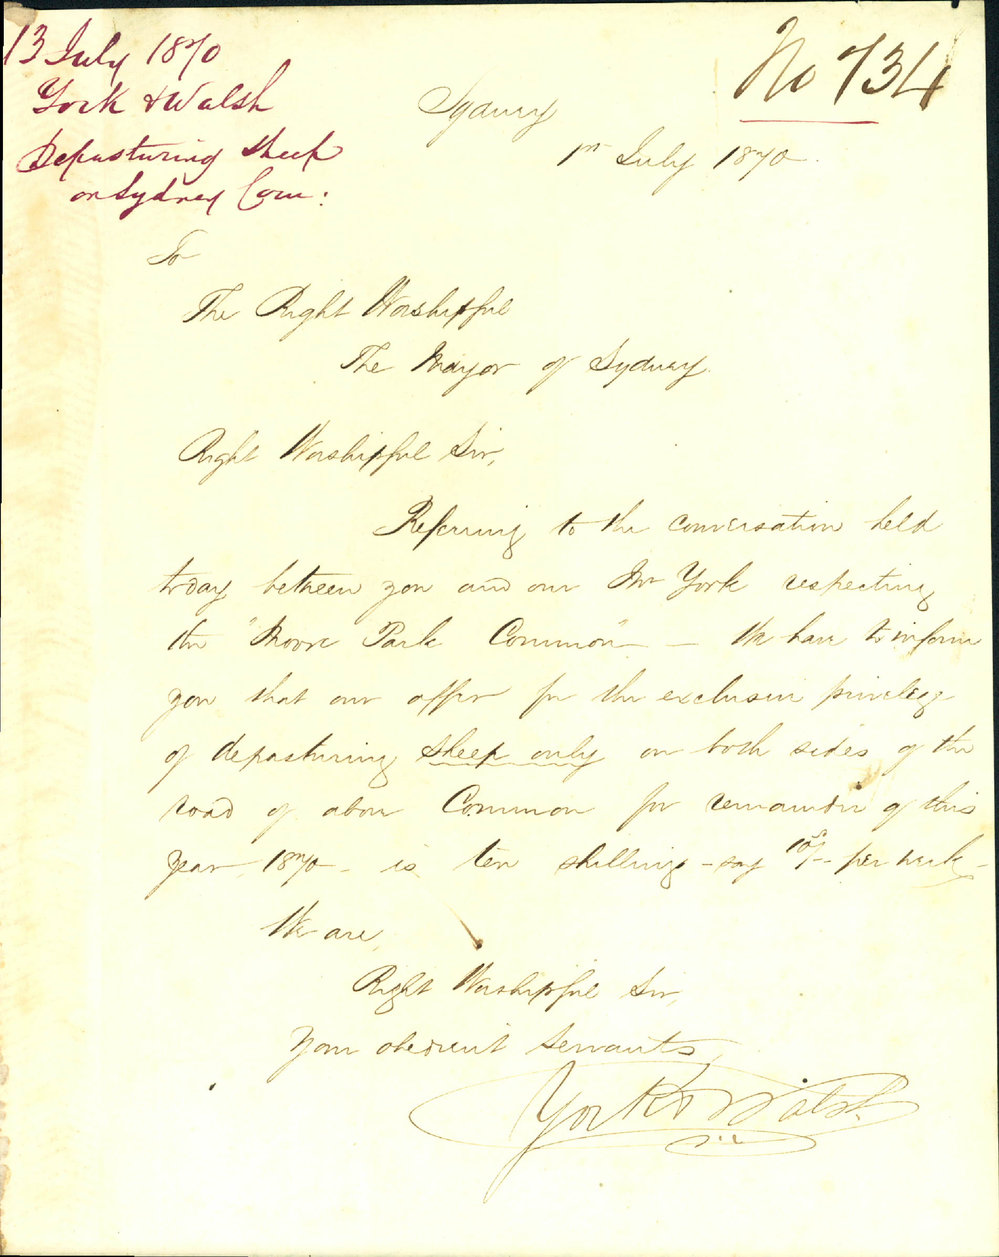 13 July 1870
York & Walsh
Depasturing sheep
on Sydney Com:
No 734
Sydney
1st July 1870.
To
The Right Worshipful
The Mayor of Sydney.
Right Worshipful Sir,
Referring to the conversation held
today between you and our Mr York respecting
the "Moore Park Common" — We have to inform
you that our offer for the exclusive privilege
of depasturing sheep only on both sides of the
road of above Common for remainder of this
year 1870 - is ten shillings - say 10/- per week -
We are,
Right Worshipful Sir,
Your obedient Servants,
York & Walsh.